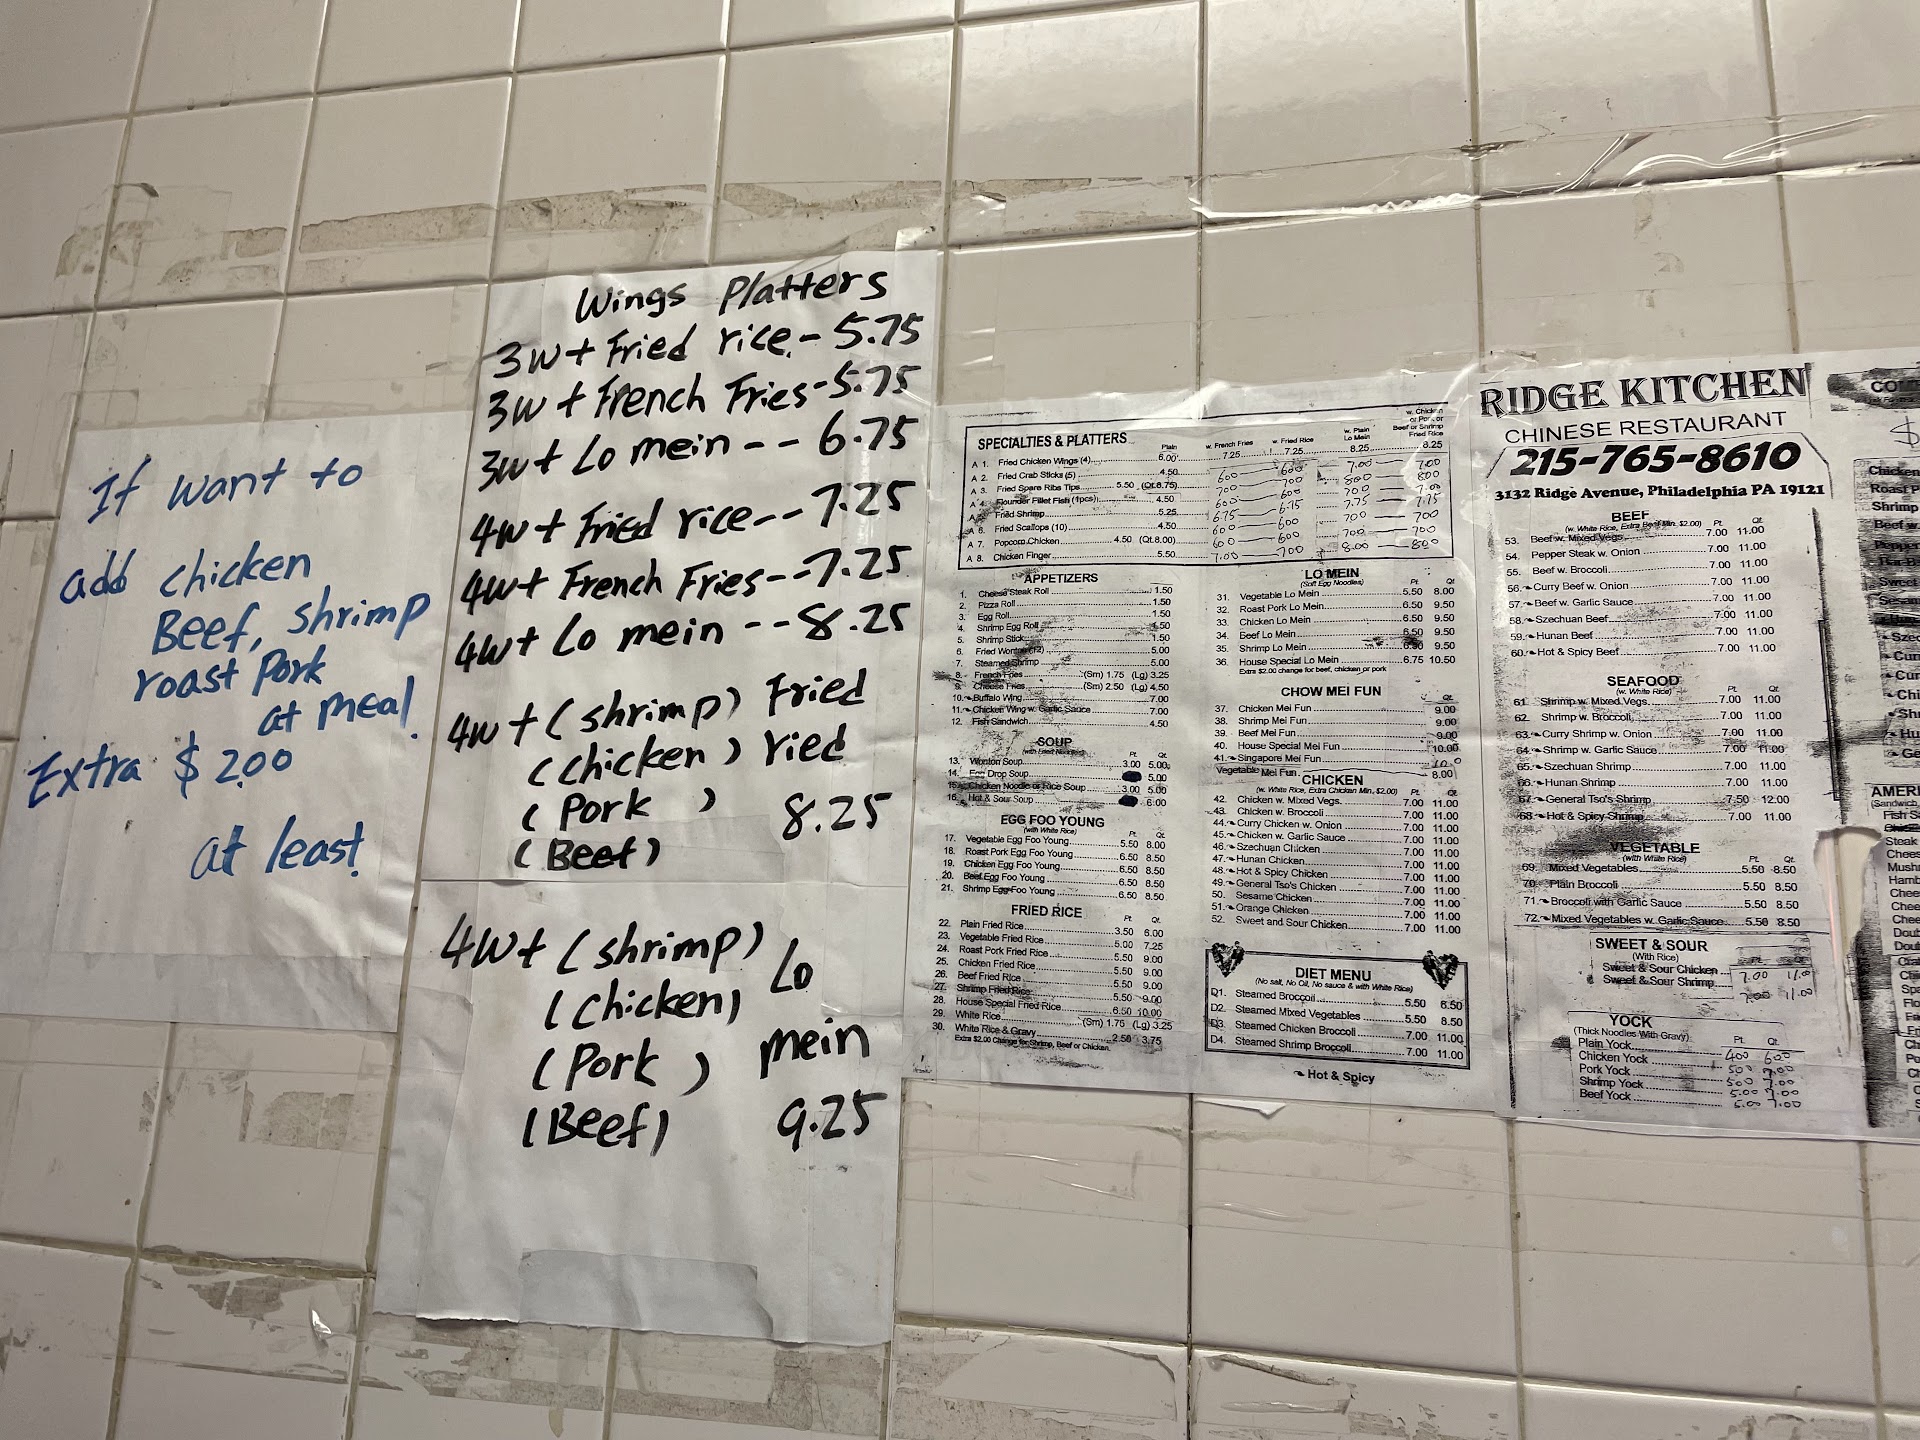 If want to
add chicken
Beef, shrimp
roast Pork
at meal.
Extra $2.00
at least.
Wings Platters
3w+Fried rice.-5.75
3w+French Fries-5.75
3w+Lo mein--6.75
4w+Fried rice--7.25
4w+French Fries--7.25
4w+Lo mein--8.25
4w+(shrimp) Fried
(chicken) ried
(Pork )
8.25
(Beef)
4w+(shrimp) Lo
(chicken)
(Pork ) mein
(Beef) 9.25
SPECIALTIES & PLATTERS
Plain w. French Fries w. Fried Rice w. Plain Lo Mein w. Chicken or Pork or Beef or Shrimp Fried Rice
A 1. Fried Chicken Wings (4) 6.00 7.25 7.25 8.25 8.25
A 2. Fried Crab Sticks (5) 4.50 600 600 7.00 7.00
A 3. Fried Spare Ribs Tips 5.50 (Qt.8.75) 700 700 800 800
Flounder Fillet Fish (1pcs) 4.50 600 600 700 7.00
Fried Shrimp 5.25 6.75 6.75 7.75 7.75
A 6. Fried Scallops (10) 4.50 600 600 700 700
A 7. Popcorn Chicken 4.50 (Qt.8.00) 600 600 700 700
A 8. Chicken Finger 5.50 7.00 700 8.00 800
APPETIZERS
1. Cheese Steak Roll 1.50
2. Pizza Roll 1.50
3. Egg Roll 1.50
4. Shrimp Egg Roll 1.50
5. Shrimp Stick 1.50
6. Fried Wonton (12) 5.00
7. Steamed Shrimp 5.00
8. French Fries (Sm) 1.75 (Lg) 3.25
9. Cheese Fries (Sm) 2.50 (Lg) 4.50
10. Buffalo Wing 7.00
11. Chicken Wing w. Garlic Sauce 7.00
12. Fish Sandwich 4.50
SOUP
(with Fried Noodles)
Pt. Qt.
13. Wonton Soup 3.00 5.00
14. Egg Drop Soup 5.00
15. Chicken Noodle or Rice Soup 3.00 5.00
16. Hot & Sour Soup 6.00
EGG FOO YOUNG
(with White Rice)
Pt. Qt.
17. Vegetable Egg Foo Young 5.50 8.00
18. Roast Pork Egg Foo Young 6.50 8.50
19. Chicken Egg Foo Young 6.50 8.50
20. Beef Egg Foo Young 6.50 8.50
21. Shrimp Egg Foo Young 6.50 8.50
FRIED RICE
Pt. Qt.
22. Plain Fried Rice 3.50 6.00
23. Vegetable Fried Rice 5.00 7.25
24. Roast Pork Fried Rice 5.50 9.00
25. Chicken Fried Rice 5.50 9.00
26. Beef Fried Rice 5.50 9.00
27. Shrimp Fried Rice 5.50 9.00
28. House Special Fried Rice 6.50 10.00
29. White Rice (Sm) 1.75 (Lg) 3.25
30. White Rice & Gravy 2.50 3.75
Extra $2.00 Change for Shrimp, Beef or Chicken.
LO MEIN
(Soft Egg Noodles)
Pt. Qt.
31. Vegetable Lo Mein 5.50 8.00
32. Roast Pork Lo Mein 6.50 9.50
33. Chicken Lo Mein 6.50 9.50
34. Beef Lo Mein 6.50 9.50
35. Shrimp Lo Mein 6.50 9.50
36. House Special Lo Mein 6.75 10.50
Extra $2.00 change for beef, chicken or pork
CHOW MEI FUN
Qt.
37. Chicken Mei Fun 9.00
38. Shrimp Mei Fun 9.00
39. Beef Mei Fun 9.00
40. House Special Mei Fun 10.00
41. Singapore Mei Fun 10.0
Vegetable Mei Fun 8.00
CHICKEN
(w. White Rice, Extra Chicken Min, $2.00)
Pt. Qt.
42. Chicken w. Mixed Vegs. 7.00 11.00
43. Chicken w. Broccoli 7.00 11.00
44. Curry Chicken w. Onion 7.00 11.00
45. Chicken w. Garlic Sauce 7.00 11.00
46. Szechuan Chicken 7.00 11.00
47. Hunan Chicken 7.00 11.00
48. Hot & Spicy Chicken 7.00 11.00
49. General Tso's Chicken 7.00 11.00
50. Sesame Chicken 7.00 11.00
51. Orange Chicken 7.00 11.00
52. Sweet and Sour Chicken 7.00 11.00
DIET MENU
(No salt, No Oil, No sauce & with White Rice)
D1. Steamed Broccoli 5.50 8.50
D2. Steamed Mixed Vegetables 5.50 8.50
D3. Steamed Chicken Broccoli 7.00 11.00
D4. Steamed Shrimp Broccoli 7.00 11.00
Hot & Spicy
RIDGE KITCHEN
CHINESE RESTAURANT
215-765-8610
3132 Ridge Avenue, Philadelphia PA 19121
BEEF
(w. White Rice, Extra Beef Min. $2.00)
Pt. Qt.
53. Beef w. Mixed Vegs 7.00 11.00
54. Pepper Steak w. Onion 7.00 11.00
55. Beef w. Broccoli 7.00 11.00
56. Curry Beef w. Onion 7.00 11.00
57. Beef w. Garlic Sauce 7.00 11.00
58. Szechuan Beef 7.00 11.00
59. Hunan Beef 7.00 11.00
60. Hot & Spicy Beef 7.00 11.00
SEAFOOD
(w. White Rice)
Pt. Qt.
61. Shrimp w. Mixed Vegs. 7.00 11.00
62. Shrimp w. Broccoli 7.00 11.00
63. Curry Shrimp w. Onion 7.00 11.00
64. Shrimp w. Garlic Sauce 7.00 11.00
65. Szechuan Shrimp 7.00 11.00
66. Hunan Shrimp 7.00 11.00
67. General Tso's Shrimp 7.50 12.00
68. Hot & Spicy Shrimp 7.00 11.00
VEGETABLE
(with White Rice)
Pt. Qt.
69. Mixed Vegetables 5.50 8.50
70. Plain Broccoli 5.50 8.50
71. Broccoli with Garlic Sauce 5.50 8.50
72. Mixed Vegetables w. Garlic Sauce 5.50 8.50
SWEET & SOUR
(With Rice)
Pt. Qt.
Sweet & Sour Chicken 7.00 11.00
Sweet & Sour Shrimp 7.00 11.00
YOCK
(Thick Noodles With Gravy)
Pt. Qt.
Plain Yock 400 600
Chicken Yock 500 7.00
Pork Yock 500 7.00
Shrimp Yock 5.00 7.00
Beef Yock 5.00 7.00
$
Chicken
Roast P
Shrimp
Beef w
Pepper
Sweet
AMERI
(Sandwich
Fish Sa
Steak
Chees
Mush
Hamb
Chee
Chee
Doub